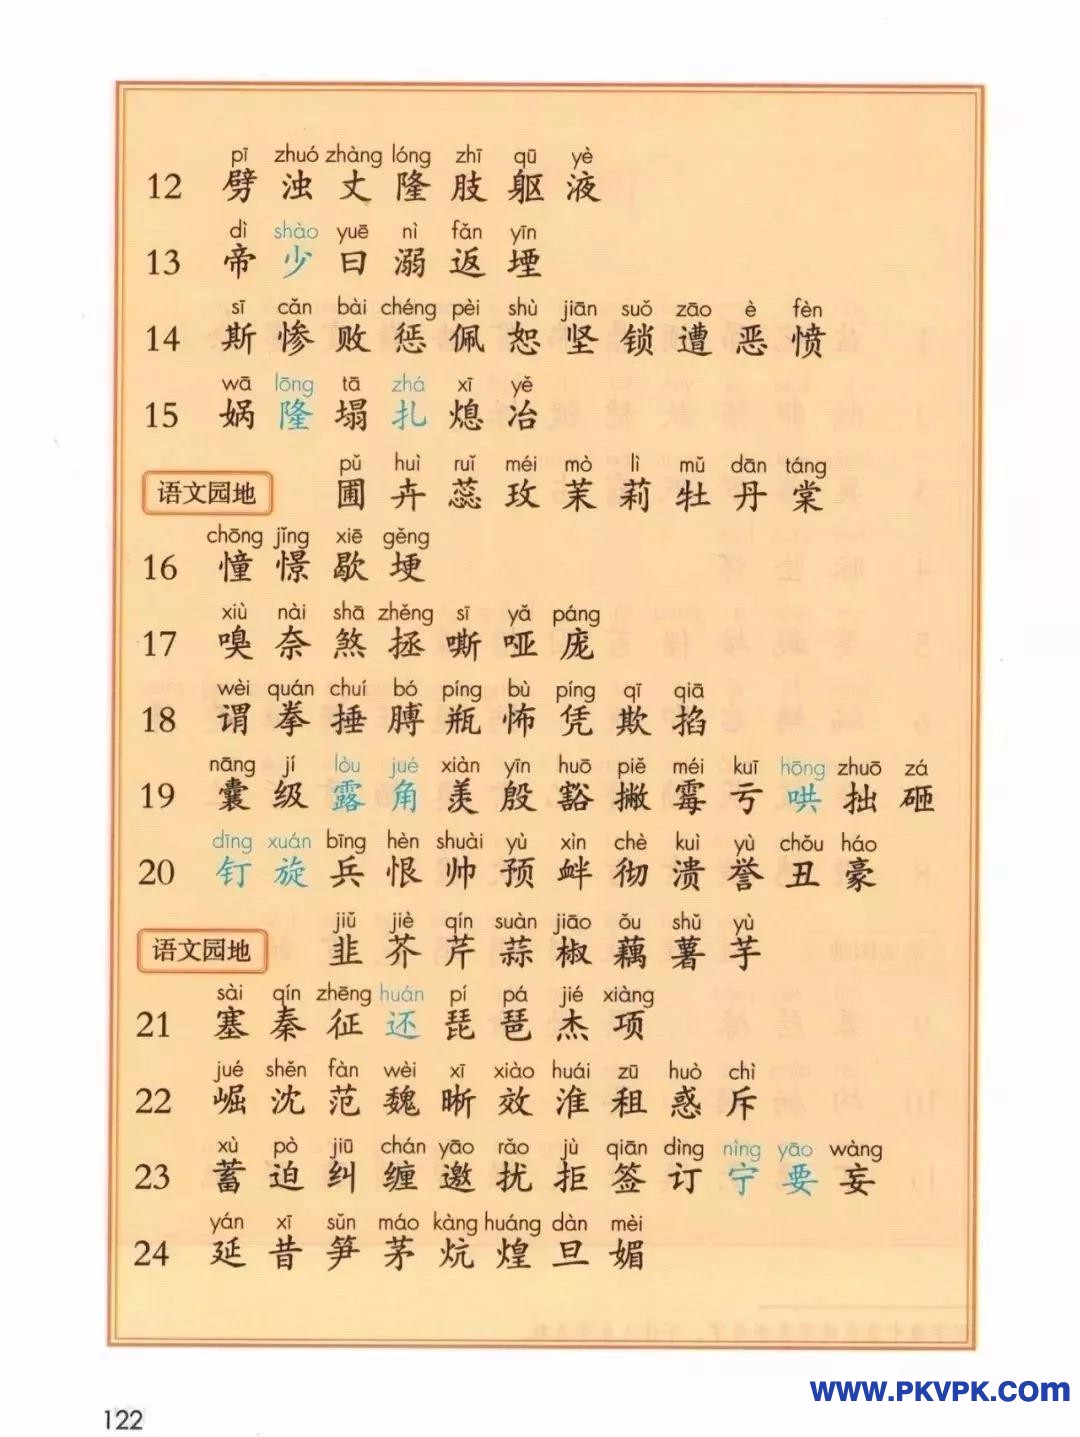 pī zhuó zhàng lóng zhī qū yè
12 劈 浊 丈 隆 肢 躯 液
dì shào yuē nì fǎn yīn
13 帝 少 曰 溺 返 堙
sī cǎn bài chéng pèi shù jiān suǒ zāo è fèn
14 斯 惨 败 惩 佩 恕 坚 锁 遭 恶 愤
wā lōng tā zhá xī yě
15 娲 隆 塌 扎 熄 冶
pǔ huì ruǐ méi mò lì mǔ dān táng
语文园地 圃 卉 蕊 玫 茉 莉 牡 丹 棠
chōng jǐng xiē gěng
16 憧 憬 歇 埂
xiù nài shā zhěng sī yǎ páng
17 嗅 奈 煞 拯 嘶 哑 庞
wèi quán chuí bó píng bù píng qī qiā
18 谓 拳 捶 膊 瓶 怖 凭 欺 掐
nāng jí lòu jué xiàn yīn huō piě méi kuī hōng zhuō zá
19 囊 级 露 角 羡 殷 豁 撇 霉 亏 哄 拙 砸
dīng xuán bīng hèn shuài yù xìn chè kuì yù chǒu háo
20 钉 旋 兵 恨 帅 预 衅 彻 溃 誉 丑 豪
jiǔ jiè qín suàn jiāo ǒu shǔ yù
语文园地 韭 芥 芹 蒜 椒 藕 薯 芋
sài qín zhēng huán pí pá jié xiàng
21 塞 秦 征 还 琵 琶 杰 项
jué shěn fàn wèi xī xiào huái zū huò chì
22 崛 沈 范 魏 晰 效 淮 租 惑 斥
xù pò jiū chán yāo rǎo jù qiān dìng nìng yāo wàng
23 蓄 迫 纠 缠 邀 扰 拒 签 订 宁 要 妄
yán xī sǔn máo kàng huáng dàn mèi
24 延 昔 笋 茅 炕 煌 旦 媚
www.PKVPK.com
122